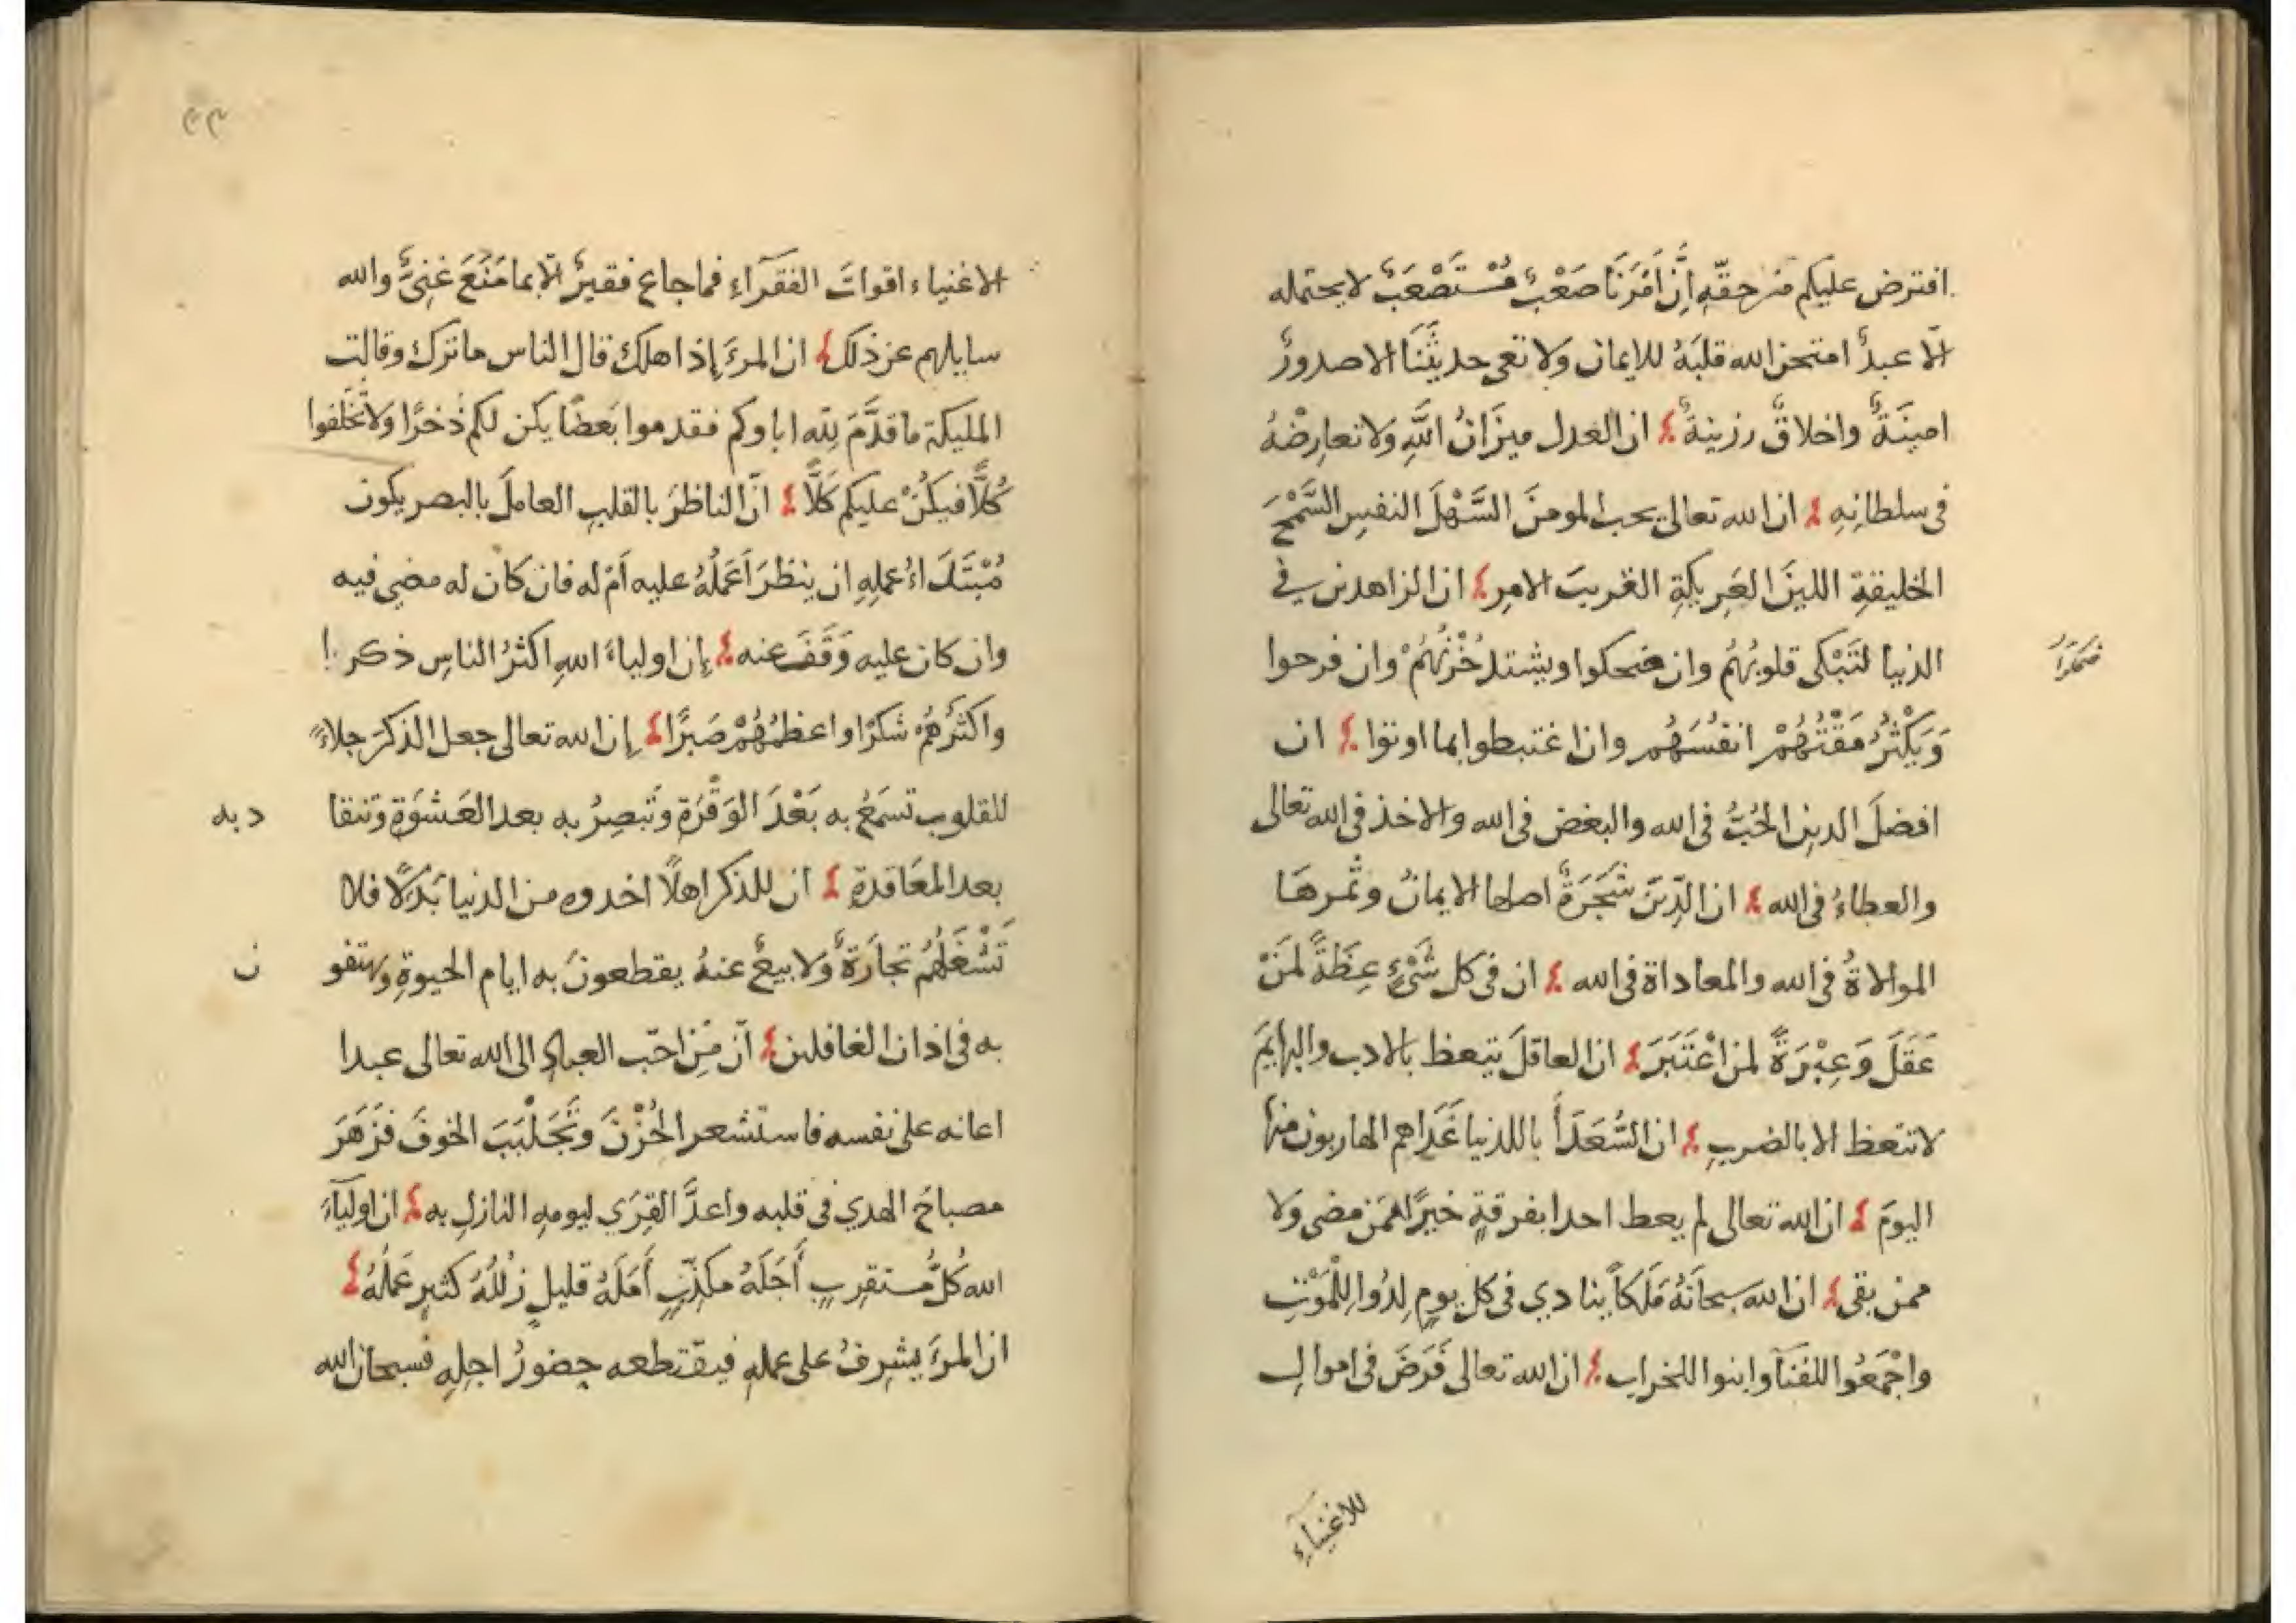 افترض عليكم من حقّه اِنَّ اَمْرَنَا صَعْبٌ مُسْتَصْعَبٌ لا يحتمله
الّا عبدٌ امتحن الله قلبَهُ للايمان ولا تعى حديثَنَا الا صدورٌ
امينَةٌ واخلاقٌ رزينةٌ ان العدل ميزَانُ اللَّهِ ولا تعارِضْهُ
فى سلطانِهِ ان الله تعالى يحب المومنَ السَّهْلَ النفسِ السَّمْحَ
الخليقةِ اللينَ العَرِيكَةِ القريبَ الامرِ ان الزاهدين في
الدنيا لتَبْكى قلوبُهُم وان ضحكوا ويشتد حُزْنُهُمْ وان فرحوا
ضحكوا
وَيَكْثُرُ مَقْتُهُمْ انفُسَهُم وان اغتبطوا بما اوتوا ان
افضلَ الدينِ الحُبُّ فى الله والبغض فى الله والاخذ فى الله تعالى
والعطاءُ فى الله ان الدِّينَ شَجَرَةٌ اصلها الايمانُ وثمرهَا
الموالاةُ فى الله والمعاداة فى الله ان فى كل شَىْءٍ عِظَةً لمَنْ
عَقَلَ وَعِبْرَةً لمن اعْتَبَرَ ان العاقلَ يتعظ بالادب والبهايمَ
لا تتعظ الا بالضربِ ان السُّعَدَأَ باللدنيا غَدًا هم الهاربون منها
اليومَ ان الله تعالى لم يعط احدا بفرقةٍ خيرًا ممن مضى ولا
ممن بقى ان الله سبحانَهُ مَلَكاً ينادي فى كل يومٍ لِدُوا للْمَوْتِ
واجْمَعُوا للفَنَآ وابنوا للخراب ان الله تعالى فَرَضَ فى اموالِ
للاغنيآءِ
٢٣
الاغنياء اقواتَ الفقرآءِ فما جاع فقيرٌ الّا بما مَنَعَ غنِىٌّ والله
سايلهم عن ذلك ان المرءَ اِذا هلك قال الناس ما ترك وقالت
المليكة ما قدَّمَ لله اباوكم فقدموا بَعضًا يكن لكم ذُخرًا ولا تُخَلفوا
كُلًّا فيكُنْ عليكم كَلًّا انّ الناظرَ بالقلبِ العاملَ بالبصر يكون
مُبْتَدَاءُ عملِهِ ان ينظرَ اَعَمَلُهُ عليه اَمْ له فان كان له مضى فيه
وان كان عليه وَقَفَ عنه اِن اولياءَ اللهِ اكثرُ الناسِ ذكرا
واكثَرُهُمْ شكرًا واعظمُهُمْ صَبرًا اِن الله تعالى جعل الذكرَ جلاءً
للقلوب تسمَعُ به بَعْدَ الوَقْرَةِ وتُبصِرُ به بعد العَشْوَةِ وتنقا
د به
بعد المعَاندةِ ان للذكر اهلاً اخدوه من الدنيا بَدَلًا فلا
تَشْغَلْهُمْ تجارَةٌ ولا بيعٌ عنهُ يقطعونَ به ايام الحيوةِ ويهتفو
ن
به فى اذان الغافلين اَنّ مِنْ احَبِّ العبادِ الى الله تعالى عبدا
اعانه على نفسه فاستشعر الحُزْنَ وتَجَلْبَبَ الخوفَ فزَهَرَ
مصباحُ الهدي فى قلبه واعدَّ القِرَي ليومِهِ النازلِ به ان اوليآءَ
الله كُلُّ مستقرِبٍ أَجَلَهُ مكذِّبٍ أَمَلَهُ قليلٍ زَلَلُهُ كثيرٍ عَمَلُهُ
ان المرءَ يشرِفُ على عملهِ فيقتطعه حضورُ اجلِهِ فسبحان الله